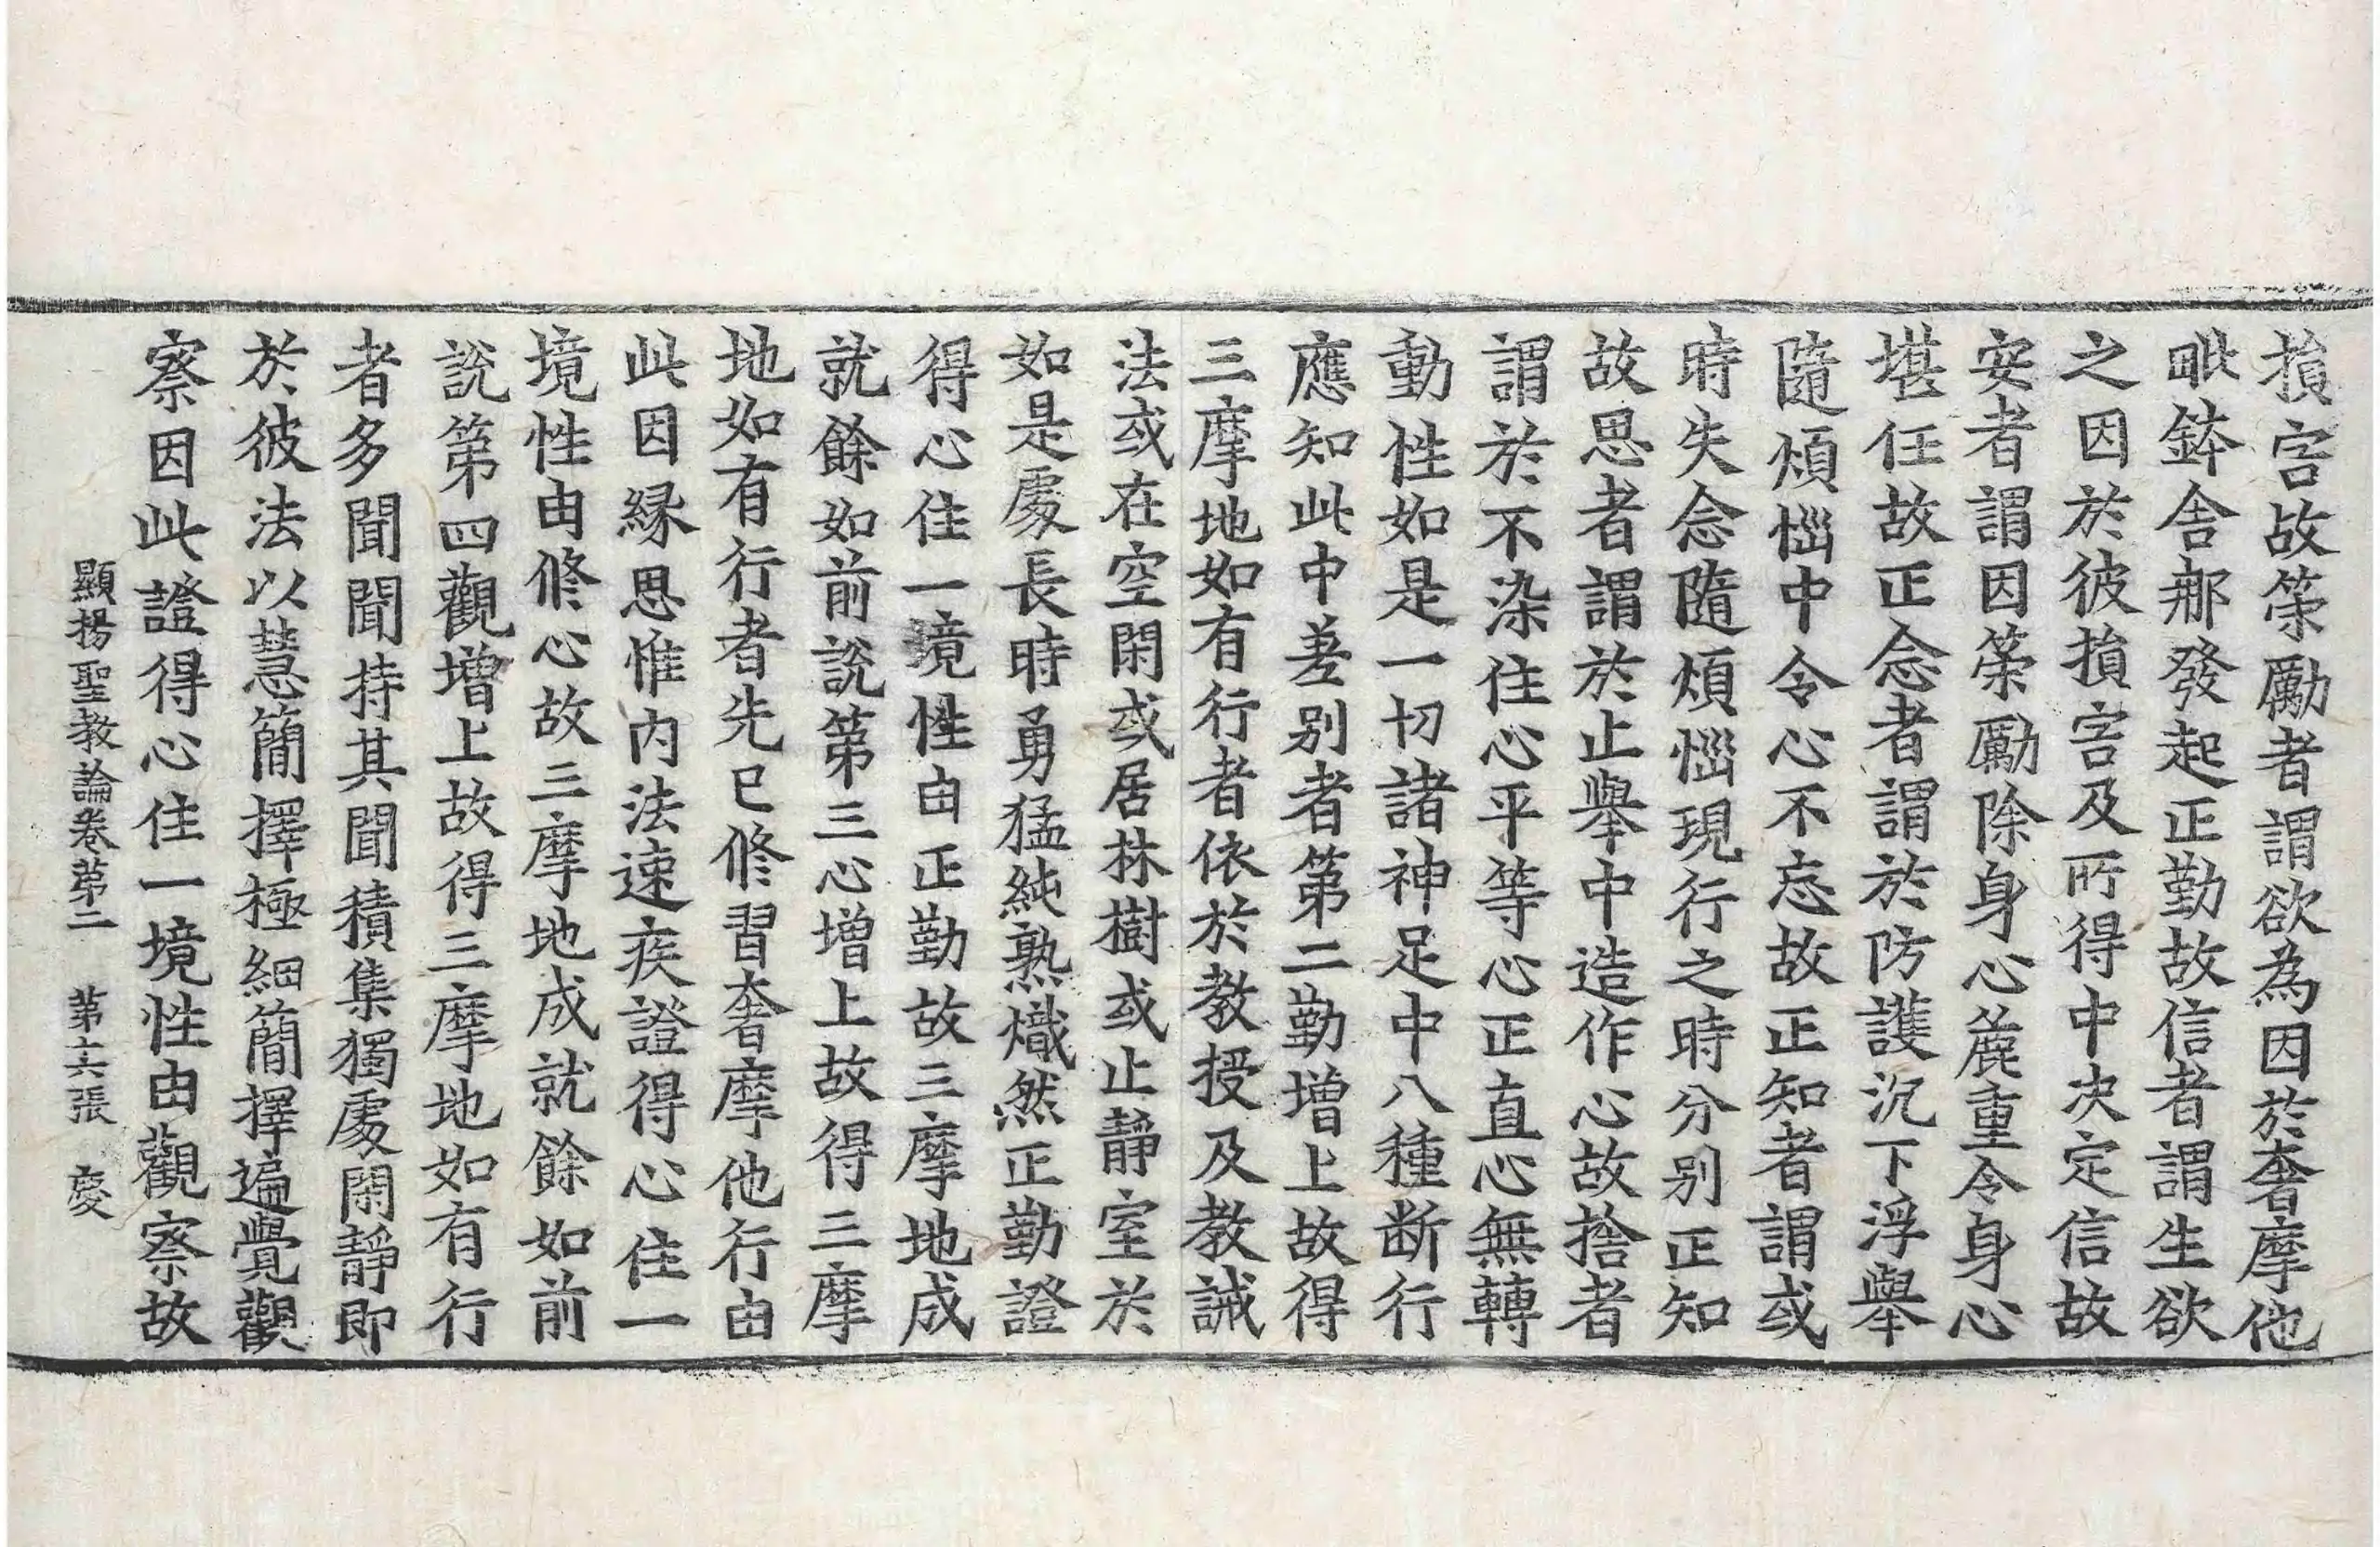 損害故策勵者謂欲為因於奢摩他
毗鉢舍那發起正勤故信者謂生欲
之因於彼損害及所得中决定信故
安者謂因策勵除身心麁重令身心
堪任故正念者謂於防護沉下浮舉
隨煩惱中令心不忘故正知者謂或
時失念隨煩惱現行之時分別正知
故思者謂於止舉中造作心故捨者
謂於不染住心平等心正直心無轉
動性如是一切諸神足中八種断行
應知此中差別者第二勤增上故得
三摩地如有行者依於教授及教誡
法或在空閑或居林樹或止靜室於
如是處長時勇猛純熟熾然正勤證
得心住一境性由正勤故三摩地成
就餘如前說第三心增上故得三摩
地如有行者先已修習奢摩他行由
此因緣思惟內法速疾證得心住一
境性由修心故三摩地成就餘如前
說第四觀增上故得三摩地如有行
者多聞聞持其聞積集獨處閑靜即
於彼法以慧簡擇極細簡擇遍覺觀
察因此證得心住一境性由觀察故
顯揚聖教論卷第二 第六張 慶